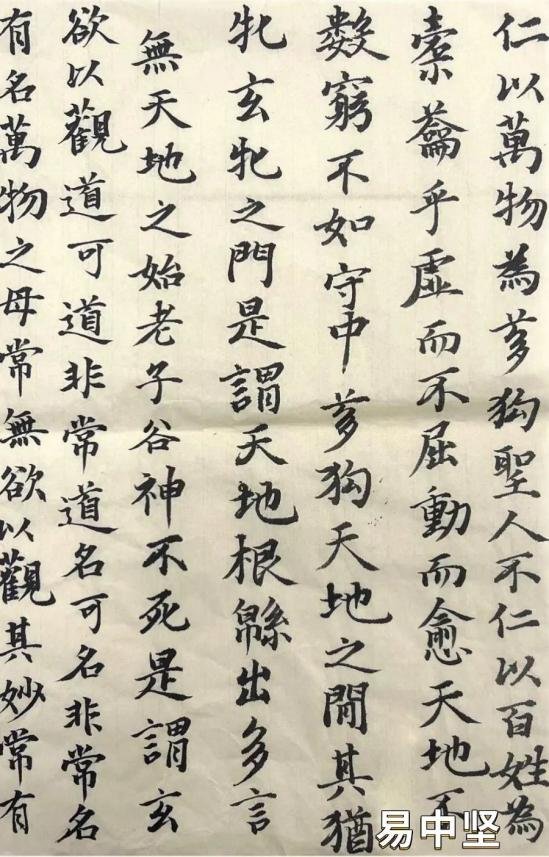 仁以萬物為芻狗聖人不仁以百姓為
橐籥乎虛而不屈動而愈天地不
數窮不如守中芻狗天地之間其猶
牝玄牝之門是謂天地根緜出多言
無天地之始老子谷神不死是謂玄
欲以觀道可道非常道名可名非常名
有名萬物之母常無欲以觀其妙常有
易中坚